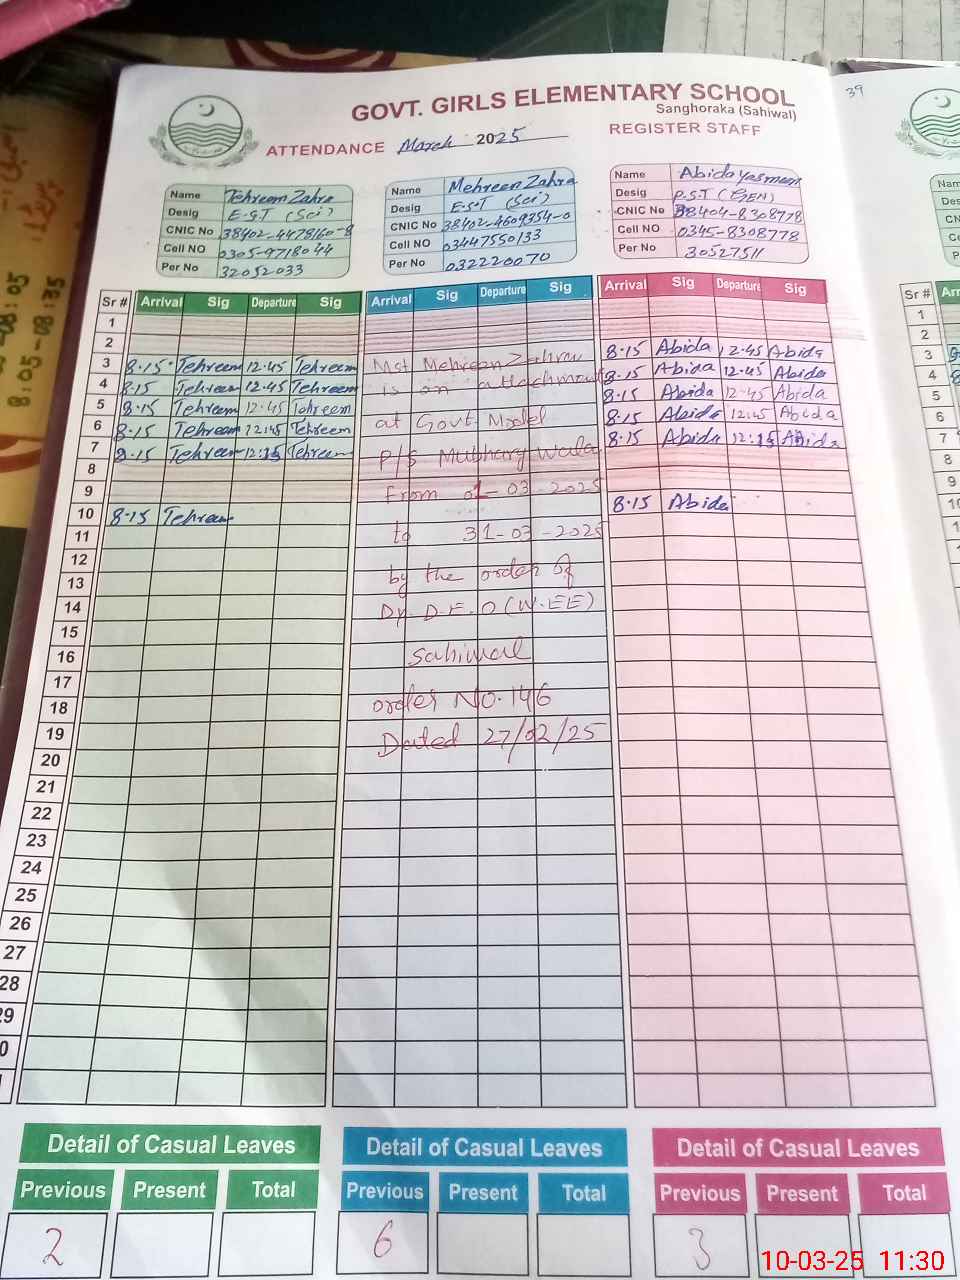 GOVT. GIRLS ELEMENTARY SCHOOL
Sanghoraka (Sahiwal)
39
ATTENDANCE March 2025 REGISTER STAFF
Name Tehreem Zahra
Desig E.S.T (Sci)
CNIC No 38402-4478160-8
Cell NO 0305-9718044
Per No 32052033
Name Mehreen Zahra
Desig E.S.T (Sci)
CNIC No 38402-4609354-0
Cell NO 03447550133
Per No 032220070
Name Abida Yasmeen
Desig P.S.T (GEN)
CNIC No 38404-8308778
Cell NO 0345-8308778
Per No 30527511
Sr # Arrival Sig Departure Sig Arrival Sig Departure Sig Arrival Sig Departure Sig
1
2
3 8.15 Tehreem 12.45 Tehreem 8.15 Abida 12.45 Abida
4 8.15 Tehreem 12.45 Tehreem 8.15 Abida 12.45 Abida
5 8.15 Tehreem 12.45 Tehreem 8.15 Abida 12.45 Abida
6 8.15 Tehreem 12.45 Tehreem 8.15 Abida 12.45 Abida
7 8.15 Tehreem 12.15 Tehreem 8.15 Abida 12.15 Abida
8
9
10 8.15 Tehreem 8.15 Abida
11
12
13
14
15
16
17
18
19
20
21
22
23
24
25
26
27
28
29
Mst Mehreen Zahra
is on attachment
at Govt. Model
P/S Mubhary Wala
From 01-03-2025
to 31-03-2025
by the order of
Dy. D.E.O (W.EE)
Sahiwal
order No. 146
Dated 27/02/25
Detail of Casual Leaves Detail of Casual Leaves Detail of Casual Leaves
Previous Present Total Previous Present Total Previous Present Total
2 6 3
10-03-25 11:30
Sr #
1
2
3
4
5
6
7
8
9
10
8:05-08:35